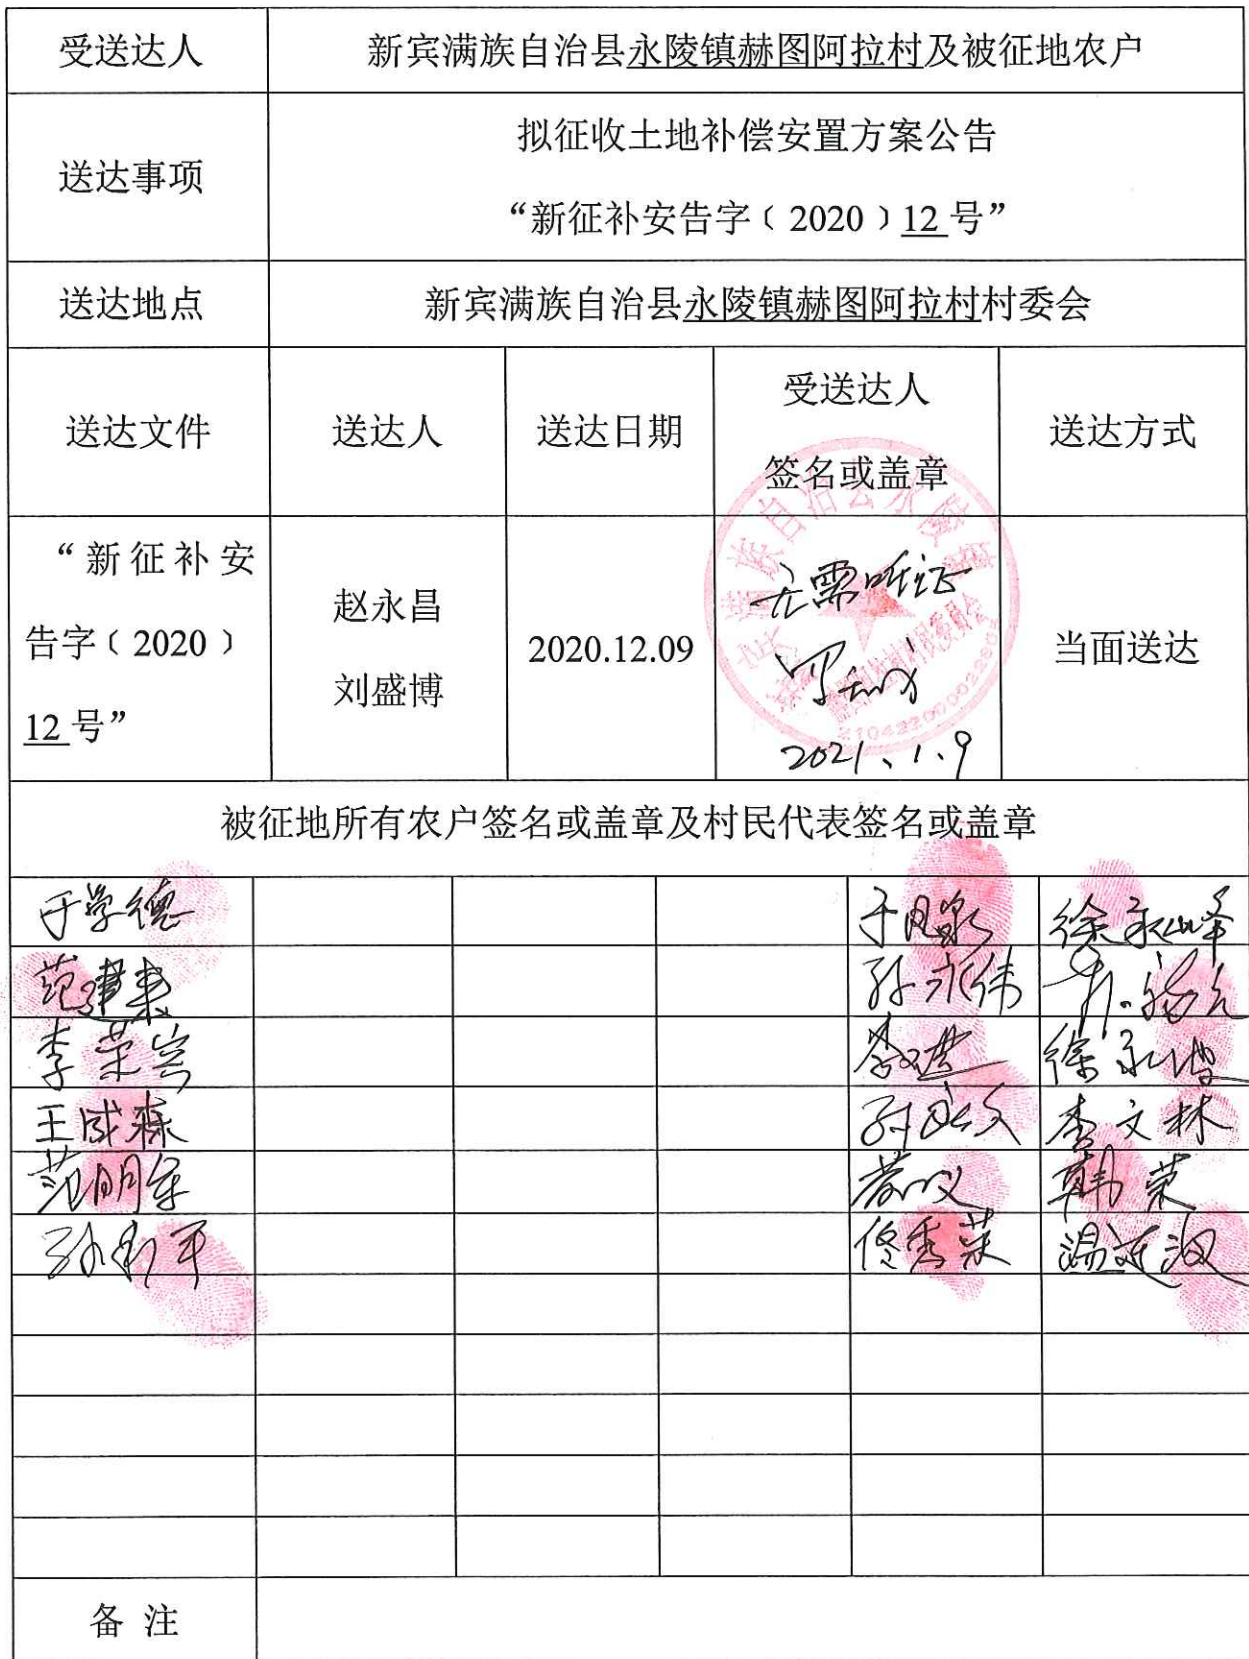 受送达人 新宾满族自治县永陵镇赫图阿拉村及被征地农户
送达事项
拟征收土地补偿安置方案公告
“新征补安告字﹝2020﹞12 号”
送达地点 新宾满族自治县永陵镇赫图阿拉村村委会
送达文件 送达人 送达日期
受送达人
签名或盖章
送达方式
“新征补安
告字﹝2020﹞
12 号”
赵永昌
刘盛博
2020.12.09
无需听证
2021.1.9
当面送达
被征地所有农户签名或盖章及村民代表签名或盖章
于学德 徐永峰
孙永伟
李荣
王成森 李文林
范明军 韩荣
佟秀荣
备 注